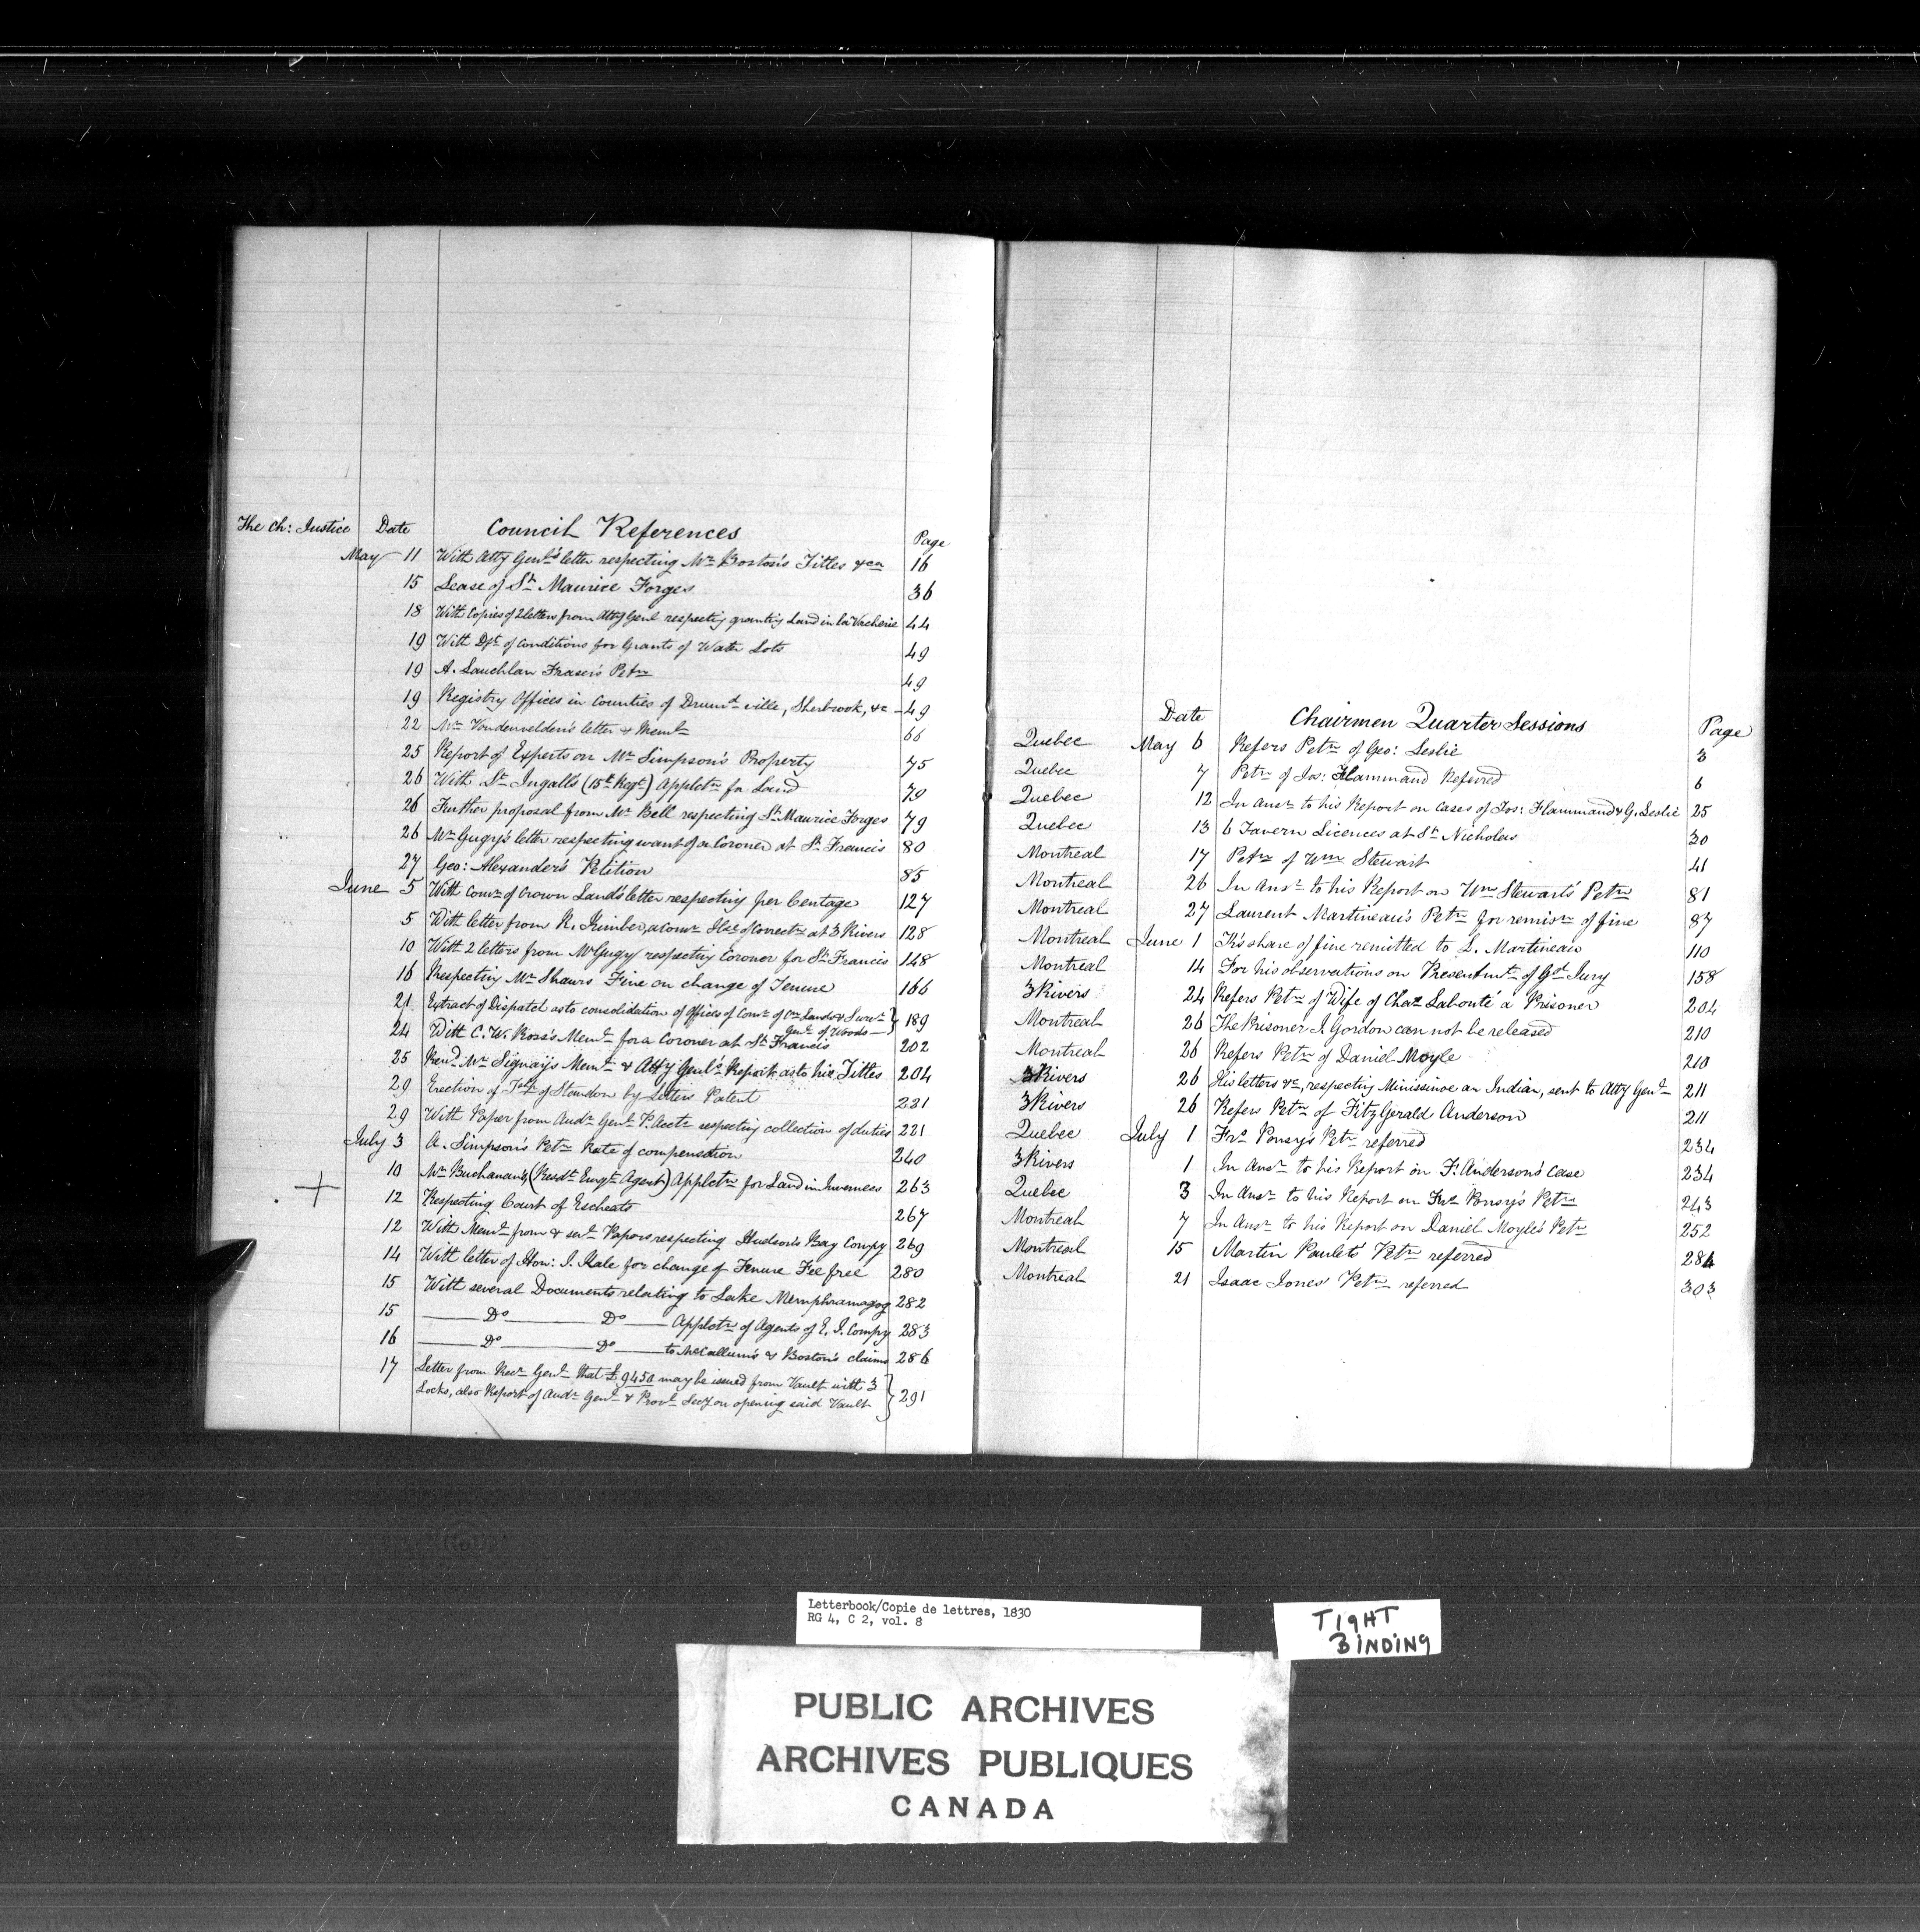 The Ch: Justice Date Council References Page
May 11 With Atty Genl's letter respecting Mr Boston's Titles &ca 16
15 Lease of St Maurice Forges 36
18 With Copies of 2 letters from Atty Genl respectg grantig Land in la Vacherie 44
19 With Dft of conditions for Grants of Water Lots 49
19 A. Lauchlan Fraser's Petn 49
19 Registry Offices in Counties of Drumd-ville, Sherbrook, &c 49
22 Mr Vondenvelden's letter & Meml 66
25 Report of Experts on Mr Simpson's Property 75
26 With Lt Ingall's (15th Regt) Applctn for Land 79
26 Further proposal from Mr Bell respecting St Maurice Forges 79
26 Mr Gugy's letter respecting want of a Coroner at St Francis 80
27 Geo: Alexander's Petition 85
June 5 With Comr of Crown Land's letter respecting per Centage 127
5 With letter from R. Kimber, a Comr Hse of Correctn at 3 Rivers 128
10 With 2 letters from Mr Gugy respectig Coroner for St Francis 148
16 Respectig Mr Shaw's Fine on change of Tenure 166
21 Extract of Dispatch as to consolidation of Offices of Comr of Cn Lands & Survr Genl of Woods 189
24 With C. W. Ross's Meml for a Coroner at St Francis 202
25 Revd Mr Signay's Meml & Atty Genl's Report as to his Titles 204
29 Erection of Tshp of Standon by Letters Patent 221
29 With Paper from Audr Genl P. Accts respectig collection of duties 221
July 3 A. Simpson's Petn Rate of compensation 240
10 Mr Buchanan's (Resdt Emgtn Agent) Applctn for Land in Inverness 263
12 Respecting Court of Escheats 267
12 With Meml from & sevl Papers respecting Hudson's Bay Compy 269
14 With letter of Hon: J. Hale for change of Tenure Fee free 280
15 With several Documents relating to Lake Memphramagog 282
15 Do Do Applctn of Agents of E. I. Compy 283
16 Do Do to McCallum's & Boston's claims 286
17 Letter from Recr Genl that £9450 may be issued from Vault with 3
Locks, also Report of Audr Genl & Provl Secy on opening said Vault 291
Date Chairmen Quarter Sessions Page
Quebec May 6 Refers Petn of Geo: Leslie 3
Quebec 7 Petn of Jos: Flammand Referred 6
Quebec 12 In Ansr to his Report on cases of Jos: Flammand & G. Leslie 25
Quebec 13 6 Tavern Licences at St Nicholas 30
Montreal 17 Petn of Wm Stewart 41
Montreal 26 In Ansr to his Report on Wm Stewart's Petn 81
Montreal 27 Laurent Martineau's Petn for remisn of fine 87
Montreal June 1 K's share of fine remitted to L. Martineau 110
Montreal 14 For his observations on Presentmt of Gd Jury 158
3 Rivers 24 Refers Petn of Wife of Chas Labonté a Prisoner 204
Montreal 26 The Prisoner J. Gordon can not be released 210
Montreal 26 Refers Petn of Daniel Moyle 210
3 Rivers 26 His letters &c, respecting Minissinoe an Indian, sent to Atty Genl 211
3 Rivers 26 Refers Petn of FitzGerald Anderson 211
Quebec July 1 Frs Ponsy's Petn referred 234
3 Rivers 1 In Ansr to his Report on F. Anderson's case 234
Quebec 3 In Ansr to his Report on Frs Ponsy's Petn 243
Montreal 7 In Ansr to his Report on Daniel Moyle's Petn 252
Montreal 15 Martin Paulet's Petn referred 284
Montreal 21 Isaac Jones' Petn referred 303
Letterbook/Copie de lettres, 1830
RG 4, C 2, vol. 8
TIGHT
BINDING
PUBLIC ARCHIVES
ARCHIVES PUBLIQUES
CANADA